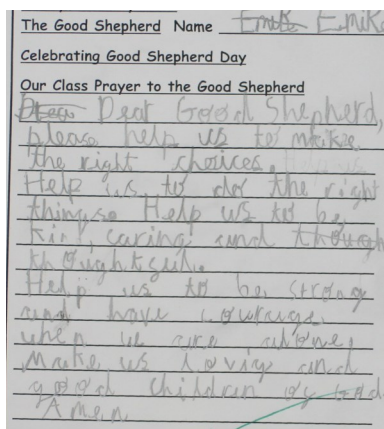 The Good Shepherd Name Emike
Celebrating Good Shepherd Day
Our Class Prayer to the Good Shepherd
Dear Good Shepherd,
please help us to make
the right choices.
Help us to do the right
things. Help us to be
kin, caring and though
thoughtful.
Help us to be strong
and have courage
when we are alone,
Make us lovig and
good children of God.
Amen